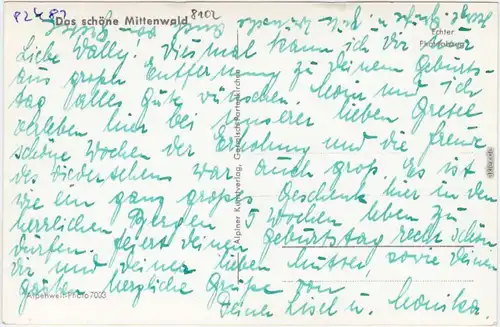 82487
Das schöne Mittenwald 8102
Echter
Liebe Wally! Diesmal kann ich Dir nur
aus großer Entfernung zu Deinem Geburts-
tag alles Gute wünschen. Moni und ich
verleben hier bei unserer lieben Gretel
schöne Wochen der Erholung und die Freude
des Wiedersehens war auch groß. Es ist
wie ein ganz großes Geschenk hier in den
herrlichen Bergen 5 Wochen leben zu
dürfen. Feiert Deinen Geburtstag recht schön
Dir und Deiner lieben Mutter, sowie Deinen
herzliche Grüße von
Deine Lisel u. Monika.
Alpenwelt-Photo 7003
Alpiner Kunstverlag, Garmisch-Partenkirchen